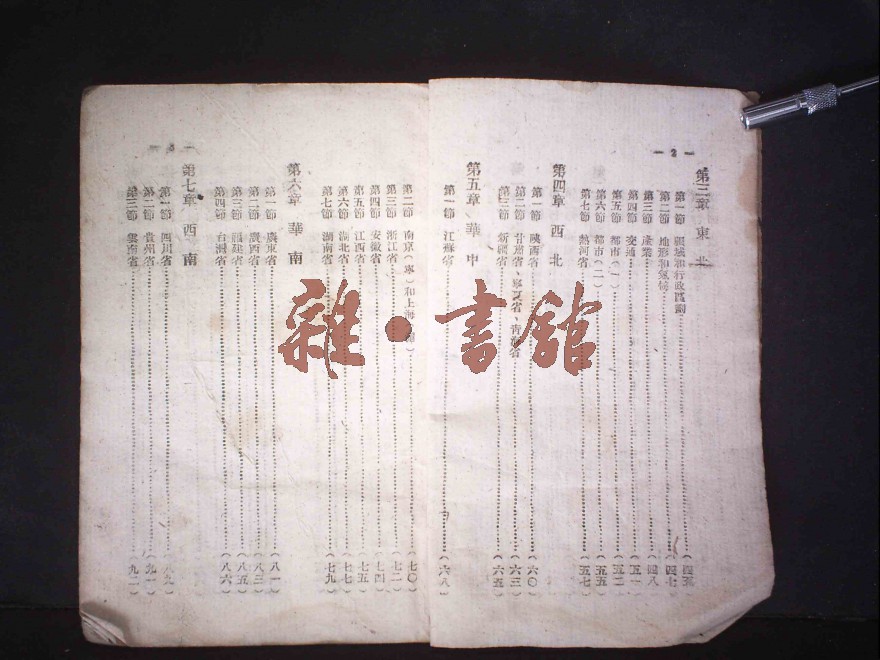 — 2 —
第三章 東北
第一節 疆域和行政區劃……(四五)
第二節 地形和氣候……(四七)
第三節 產業……(四八)
第四節 交通……(五一)
第五節 都市(一)……(五二)
第六節 都市(二)……(五五)
第七節 熱河省……(五七)
第四章 西北
第一節 陝西省……(六〇)
第二節 甘肅省、寧夏省、青海省……(六三)
第三節 新疆省……(六五)
第五章 華中
第一節 江蘇省……(六八)
第二節 南京(寧)和上海()……(七〇)
第三節 浙江省……(七二)
第四節 安徽省……(七四)
第五節 江西省……(七五)
第六節 湖北省……(七七)
第七節 湖南省……(七九)
第六章 華南
第一節 廣東省……(八一)
第二節 廣西省……(八三)
第三節 福建省……(八五)
第四節 台灣省……(八六)
第七章 西南
第一節 四川省……(八九)
第二節 貴州省……(九一)
第三節 雲南省……(九二)
雜·書館